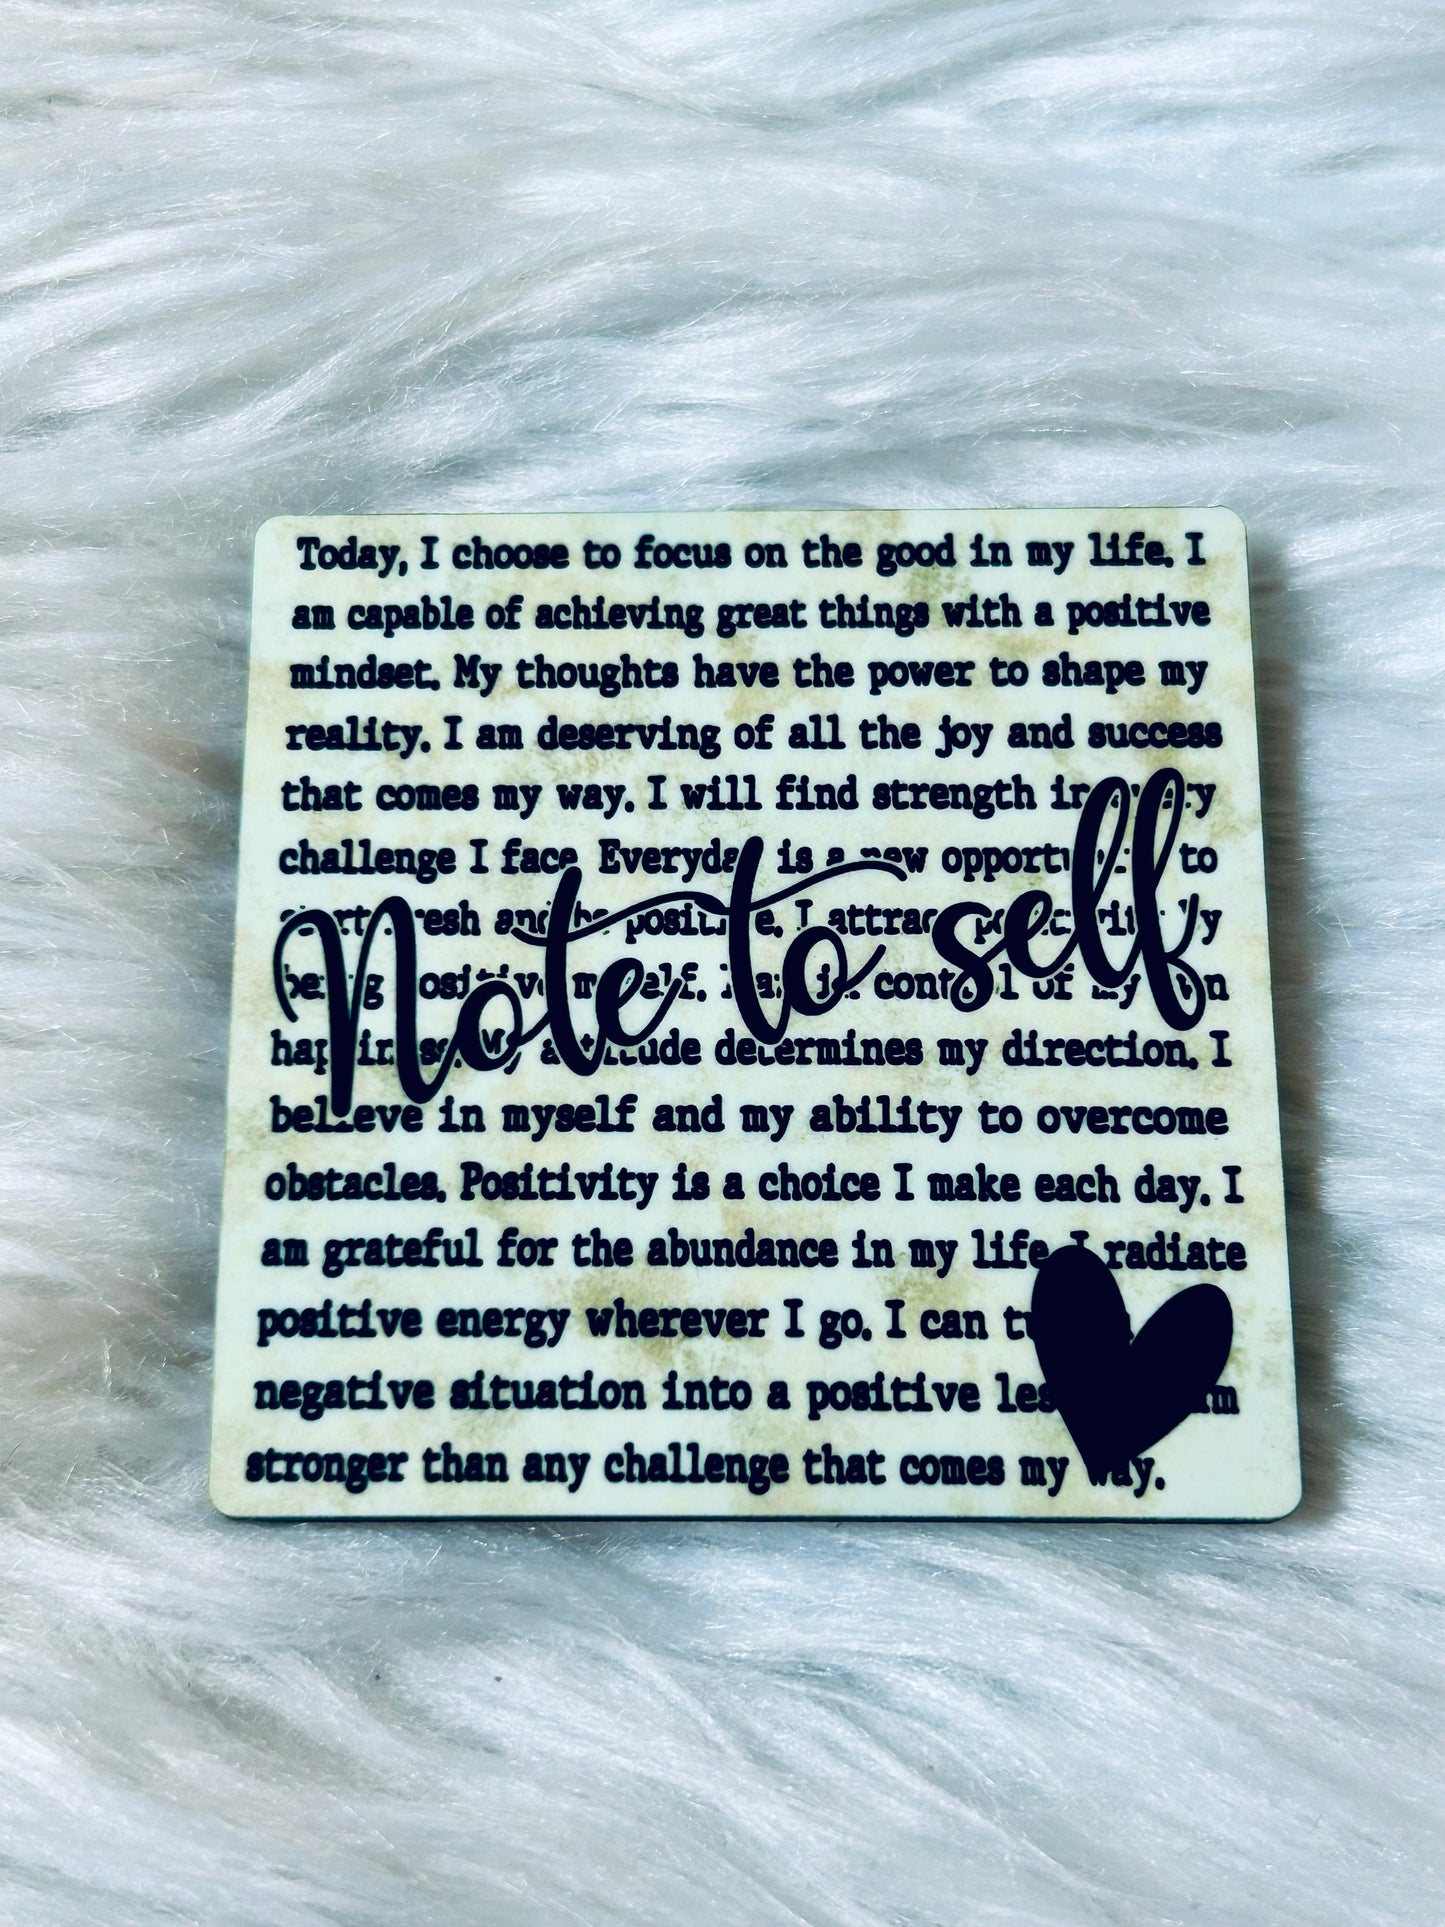 Today, I choose to focus on the good in my life. I
am capable of achieving great things with a positive
mindset. My thoughts have the power to shape my
reality. I am deserving of all the joy and success
that comes my way. I will find strength in every
challenge I face. Everyday is a new opportunity to
start fresh and be positive. I attract positivity by
being positive myself. I am in control of my own
happiness. My attitude determines my direction. I
believe in myself and my ability to overcome
obstacles. Positivity is a choice I make each day. I
am grateful for the abundance in my life. I radiate
positive energy wherever I go. I can
negative situation into a positive
stronger than any challenge that comes my way.
Note to self